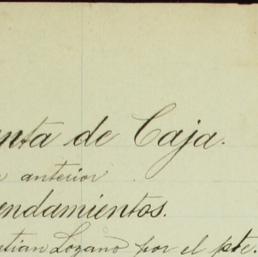 nta de Caja.
anterior
endamientos.
stian Lozano por el pte.